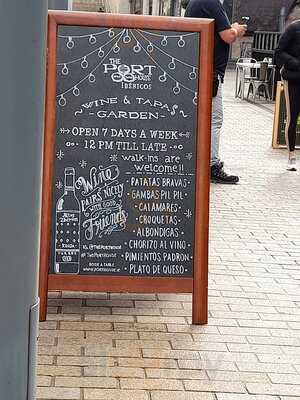 THE
PORT
HOUSE
IBÉRICOS
WINE & TAPAS
GARDEN
OPEN 7 DAYS A WEEK
12 PM TILL LATE
walk-ins are
welcome!!
PATATAS BRAVAS
GAMBAS PIL PIL
CALAMARES
CROQUETAS
ALBONDIGAS
CHORIZO AL VINO
PIMIENTOS PADRON
PLATO DE QUESO
Wine
PAIRS NICELY
WITH GOOD
Friends
@THEPORTHOUSE
# THEPORTHOUSE
BOOK A TABLE
WWW.PORTHOUSE.IE